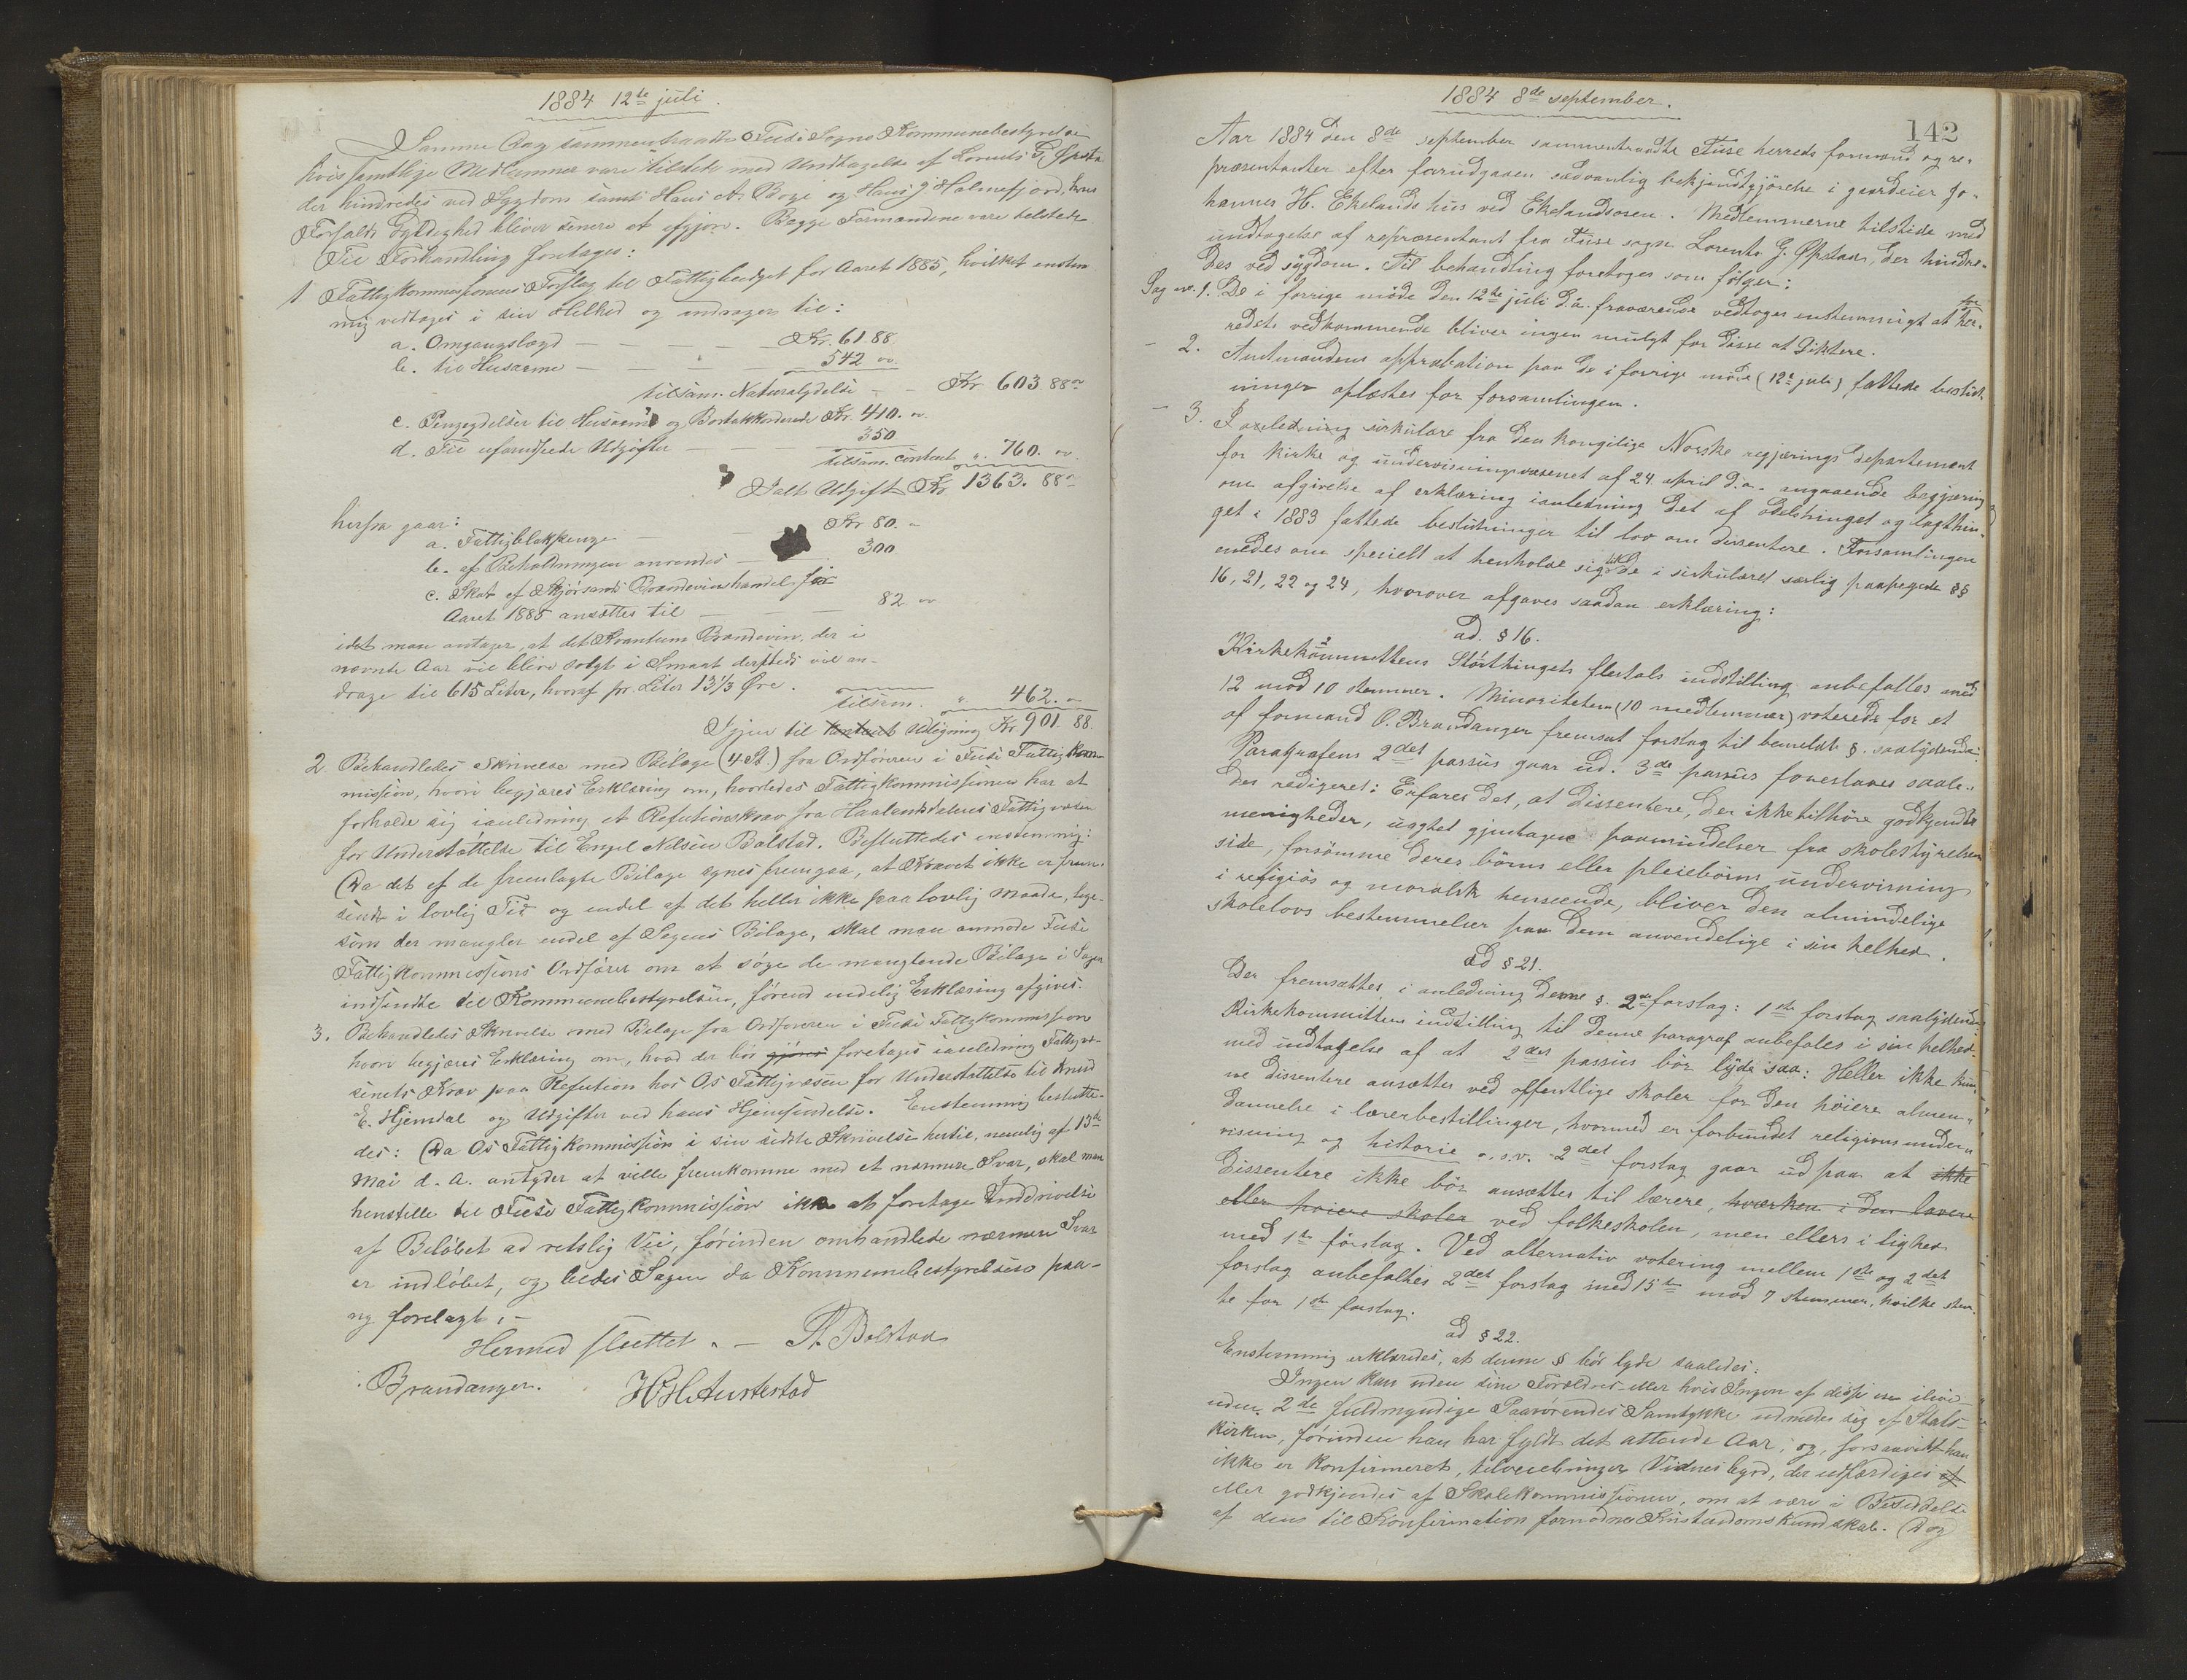 1884 12te juli.
Samme Dag sammentraadte Fuse Sogns Kommunebestyrelse
hvis samtlige Medlemmer vare tilstede med Undtagelse af Lorents G. Øpstad
der hindredes ved Sygdom samt Hans A. Boge og Hans J Holmefjord. hvis
Forfalds Gyldighed bliver senere at afgjøre. Begge Formændene vare tilstede
Til Forhandling foretages:
1 Fattigkommissionens Forslag til Fattigbudget for Aaret 1885, hvilket enstem-
mig vedtages i sin Helhed og andrager til:
a. Omgangslægd — — — — Kr. 61 88.
b. til Husarme — — — — 542 "
tilsam. Naturalydelse — Kr 603 88 "
c. Pengeydelser til Husarme og Bortakkorderede Kr. 410. "
d. Til uforudseede Udgifter — — 350
tilsam. contant " 760. "
Ialt Udgift Kr 1363. 88 "
herfra gaar:
a. Fattigblokpenge — — Kr 80. "
b. af Beholdningen anvendes — 300
c. Skat af Skjørsands Brændevinshandel for
Aaret 1885 ansættes til — — — 82 "
idet man antager, at det Kvantum Brændevin, der i
nævnte Aar vil blive solgt i Smaat dersteds vil an-
drage til 615 Liter, hvoraf pr. Liter 13 1/3 Øre.
tilsam. " 462. "
Igjen til kontant Udligning Kr 901. 88.
2 Behandledes Skrivelse med Bilage (4 St.) fra Ordføreren i Fuse Fattigkom-
mission, hvori begjæres Erklæring om, hvorledes Fattigkommissionen har at
forholde sig ianledning et Refutionskrav fra Haalandsdalens Fattigvæsen
for Understøttelse til Engel Nilsen Bolstad. Besluttedes enstemmig:
Da det af de fremlagte Bilage synes fremgaa, at Kravet ikke er frem-
sendt i lovlig Tid og endel af det heller ikke paa lovlig Maade, lige-
som der mangler endel af Sagens Bilage, skal man anmode Fuse
Fattigkommissions Ordfører om at søge de manglende Bilage i Sagen
indsendte til Kommunebestyrelsen, førend endelig Erklæring afgives.
3. Behandledes Skrivelse med Bilage fra Ordføreren i Fuse Fattigkommission
hvori begjæres Erklæring om, hvad der bør gjøres foretages ianledning Fattigvæ-
senets Krav paa Refution hos Os Fattigvæsen for Understøttelse til Knud
E. Hjemdal og Udgifter ved hans Hjemsendelse. Enstemmig beslutte-
des: Da Os Fattigkommission i sin sidste Skrivelse hertil, nemlig af 13de
Mai d. A. antyder at ville fremkomme med et nærmere Svar, skal man
henstille til Fuse Fattigkommission ikke at foretage Inddrivelse
af Beløbet ad retslig Vei, førinden omhandlede nærmere Svar
er indløbet, og bedes Sagen da Kommunebestyrelsen paa-
ny forelagt. —
Hermed sluttet. — A. Bolstad
Brandanger. H. H. Austestad
1884 8de september.
142
Aar 1884 den 8de september sammentraadte Fuse herreds formand og re-
præsentanter efter forudgaaen sædvanlig bekjendtgjörelse i gaardeier Jo-
hannes H. Ekelands hus ved Ekelandsosen. Medlemmerne tilstede med
undtagelse af repræsentant fra Fuse sogn Lorents G. Øpstaas, der hindre-
des ved sygdom. Til behandling foretoges som fölger:
Sag no. 1. De i forrige möde den 12te juli d.a. fraværende vedtoges enstemmigt at for her-
redets vedkommende bliver ingen mulgt for disse at diktere.
— 2. Amtmandens approbation paa de i forrige möde (12te juli) fattede beslut-
ninger oplæstes for forsamlingen.
— 3. I anledning sirkulære fra den kongelige Norske regjerings departement
for kirke og undervisningsvæsenet af 24 april d.a. angaaende begjæring
om afgivelse af erklæring ianledning det af odelsthinget og lagthin-
get i 1883 fattede beslutninger til lov om dissentere. Forsamlingen
enedes om specielt at henholde sig til de i sirkulæret særlig paapegede §§
16, 21, 22 og 24, hvorover afgaves saadan erklæring:
ad. § 16.
Kirkekommittens Storthingets flertals indstilling anbefalles med
12 mod 10 stemmer. Minoriteten (10 medlemmer) voterede for et
af formand O. Brandanger fremsat forslag til bemeldte §. saalydende:
Paragrafens 2det passus gaar ud. 3de passus foreslaaes saale-
des redigeret: Erfares det, at dissentere, der ikke tilhöre godkjendte
menigheder, uagtet gjentagne paamindelser fra skolestyrelsens
side, forsömme deres börns eller pleiebörns undervisning
i religiös og moralsk henseende, bliver den almindelige
skolelovs bestemmelser paa dem anvendelige i sin helhed.
ad § 21.
Der fremsattes i anledning denne §. 2de forslag: 1ste forslag saalydende
Kirkekommittens indstilling til denne paragraf anbefales i sin helhed
med undtagelse af at 2det passus bör lyde saa: Heller ikke kun-
ne dissentere ansættes ved offentlige skoler for den höiere almen-
dannelse i lærerbestillinger, hvormed er forbundet religionsunder-
visning og historie o.s.v. 2det forslag gaar ud paa at ikke
dissentere ikke bör ansættes til lærere, hverken i den lavere
eller höiere skoler ved folkeskolen, men ellers i lighed
med 1ste forslag. Ved alternativ votering mellem 1ste og 2det
forslag anbefaltes 2det forslag med 15 mod 7 stemmer, hvilke stem-
te for 1ste forslag.
ad § 22.
Enstemmig erklæredes, at denne § bör lyde saaledes:
Ingen kan uden sine Forældres eller hvis Ingen af disse er ilive
uden 2de fuldmyndige Paarørendes Samtykke udmelde sig af Stats-
kirken, førinden han har fyldt det attende Aar, og, forsaavidt han
ikke er konfirmeret, tilveiebringer Vidnesbyrd, der udfærdiges af
eller godkjendes af Skolekommissionen, om at være i Besiddelse
af dens til Konfirmation fornødne Kristendomskundskab. Dog